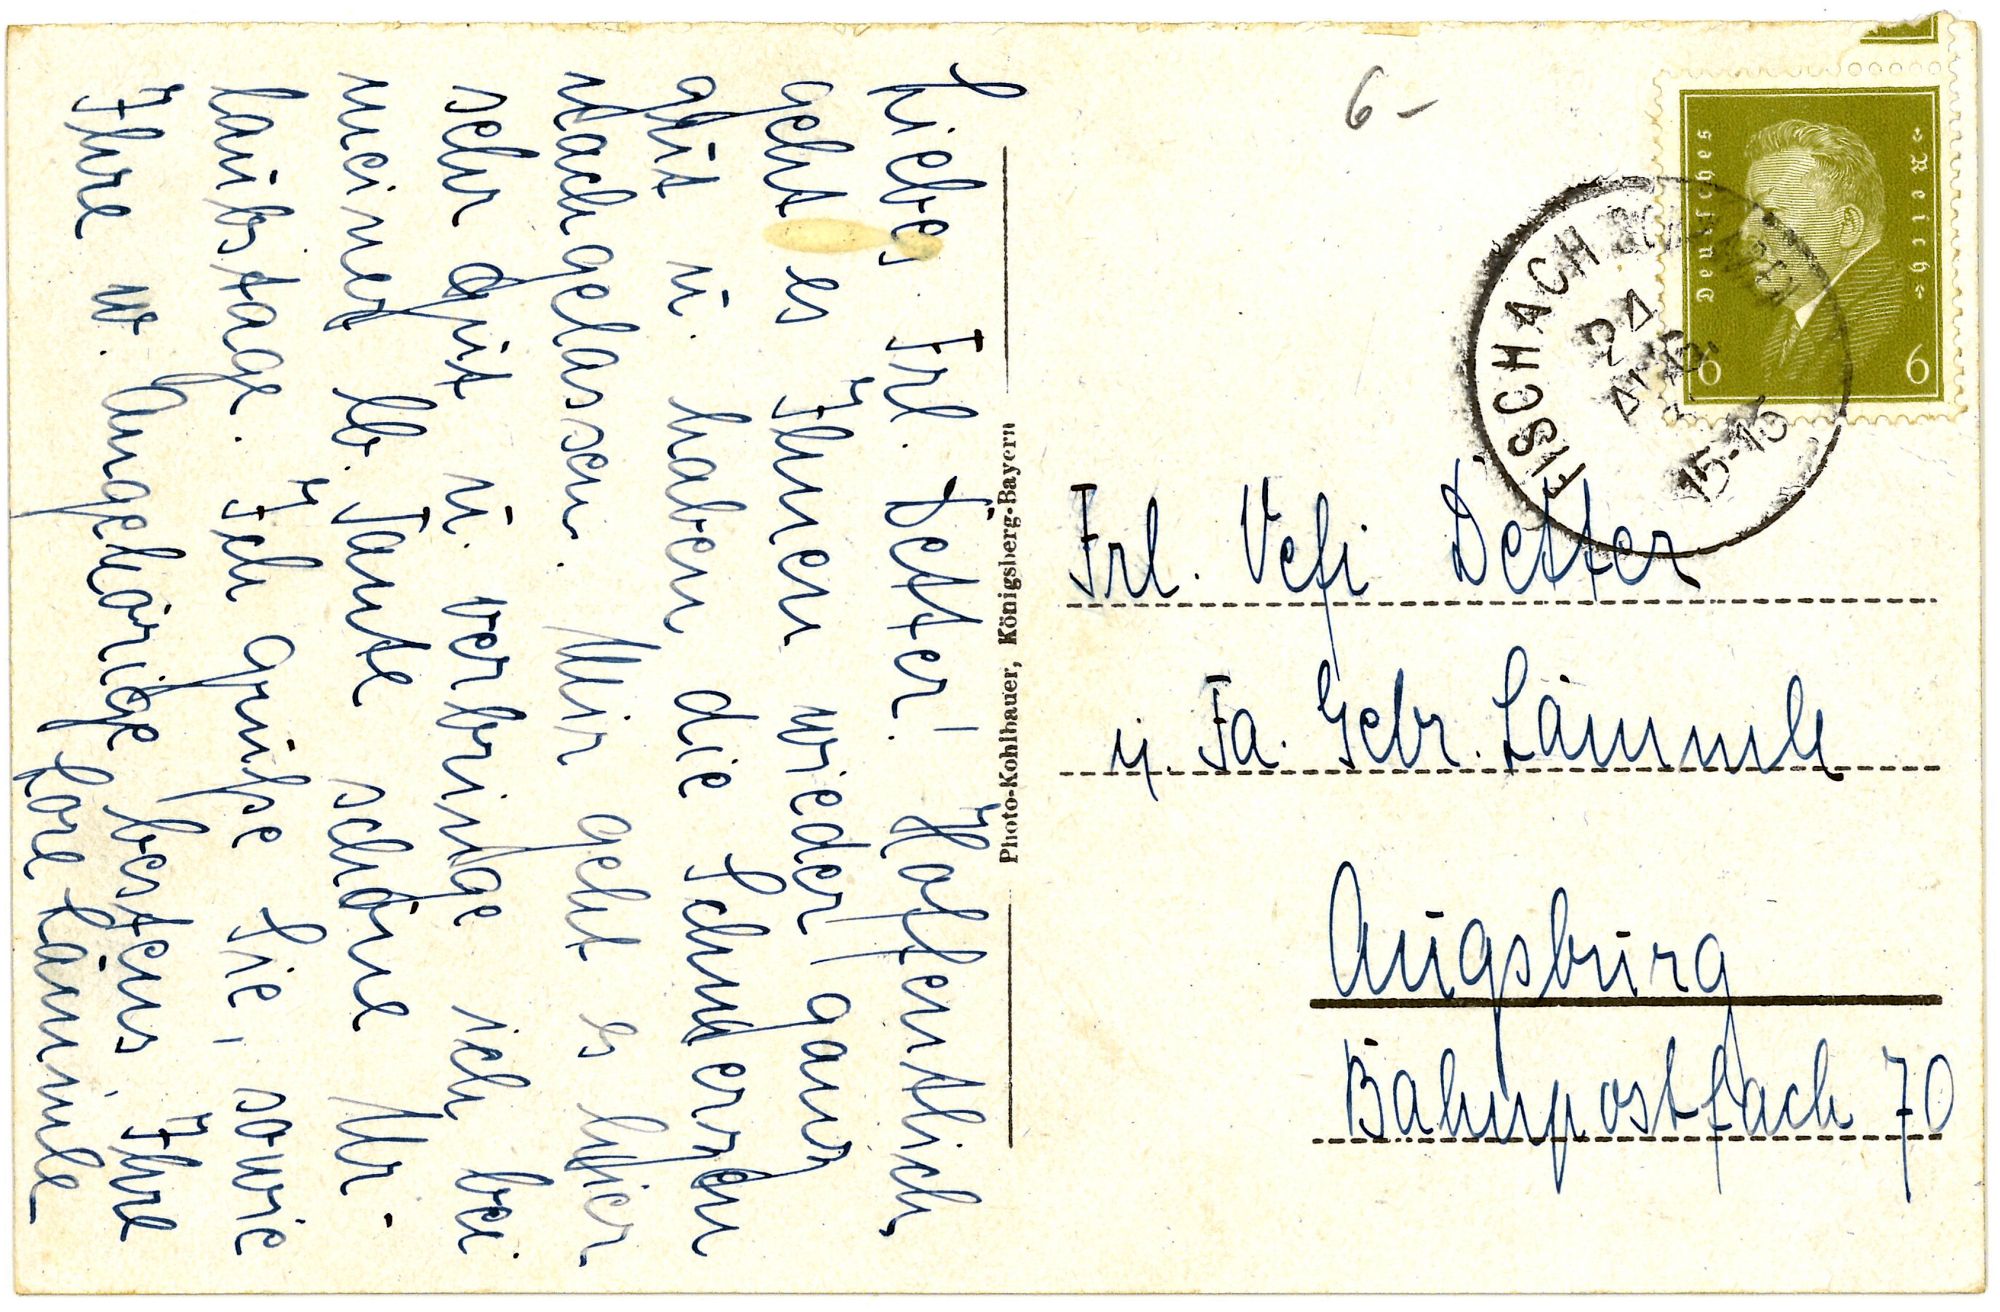 Liebes Frl. Detter! Hoffentlich
geht es Ihnen wieder ganz
gut u. haben die Schmerzen
nachgelassen. Mir geht es hier
sehr gut u. verbringe ich bei
meiner lb. Tante schöne Ur-
laubstage. Ich grüße Sie, sowie
Ihre w. Angehörige bestens, Ihre
Lore Lämmle
Photo-Kohlbauer, Königsberg-Bayern
6-
Deutsches Reich
6 6
FISCHACH
24
AUG.
15-16
Frl. Vefi Detter
Fa. Gebr. Lämmle
Augsburg
Bahnpostfach 70